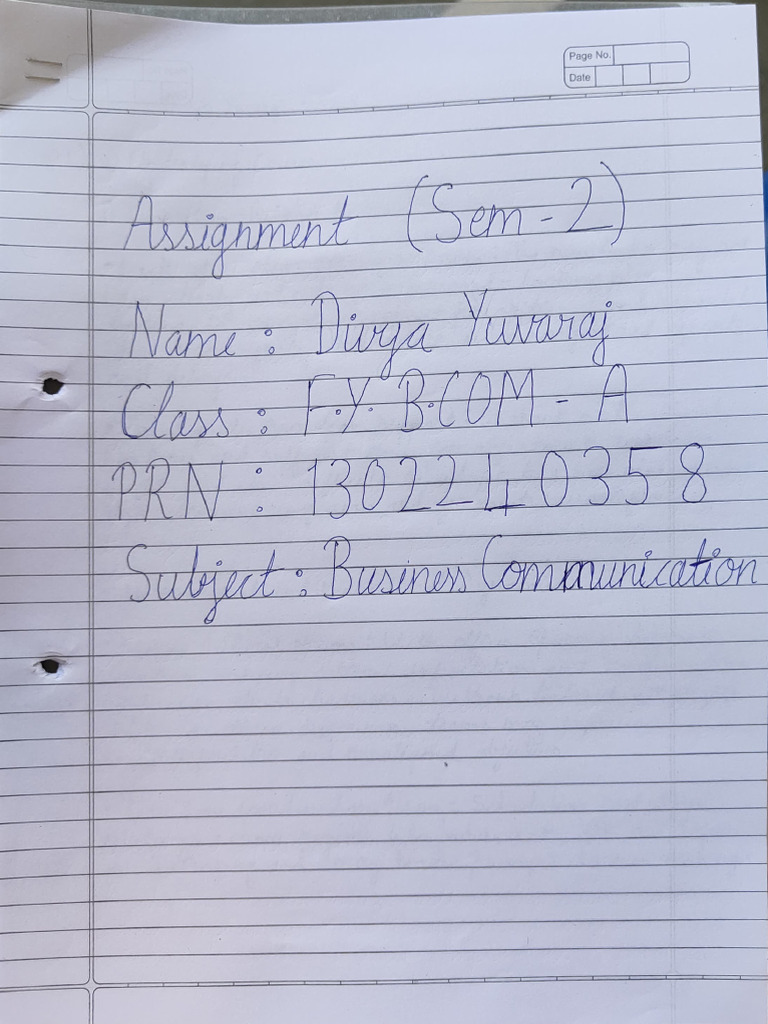 Page No.
Date
Assignment (Sem - 2)
Name : Divya Yuvaraj
Class : F.Y. B.COM - A
PRN : 1302240358
Subject : Business Communication